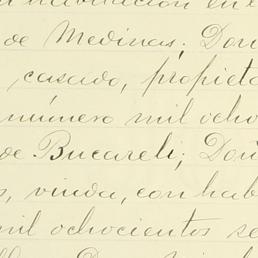 habitación en
de Medinas; Don
, casado, propieta
número mil ocho
de Bucareli; Don
s, viuda, con hab
mil ochocientos se